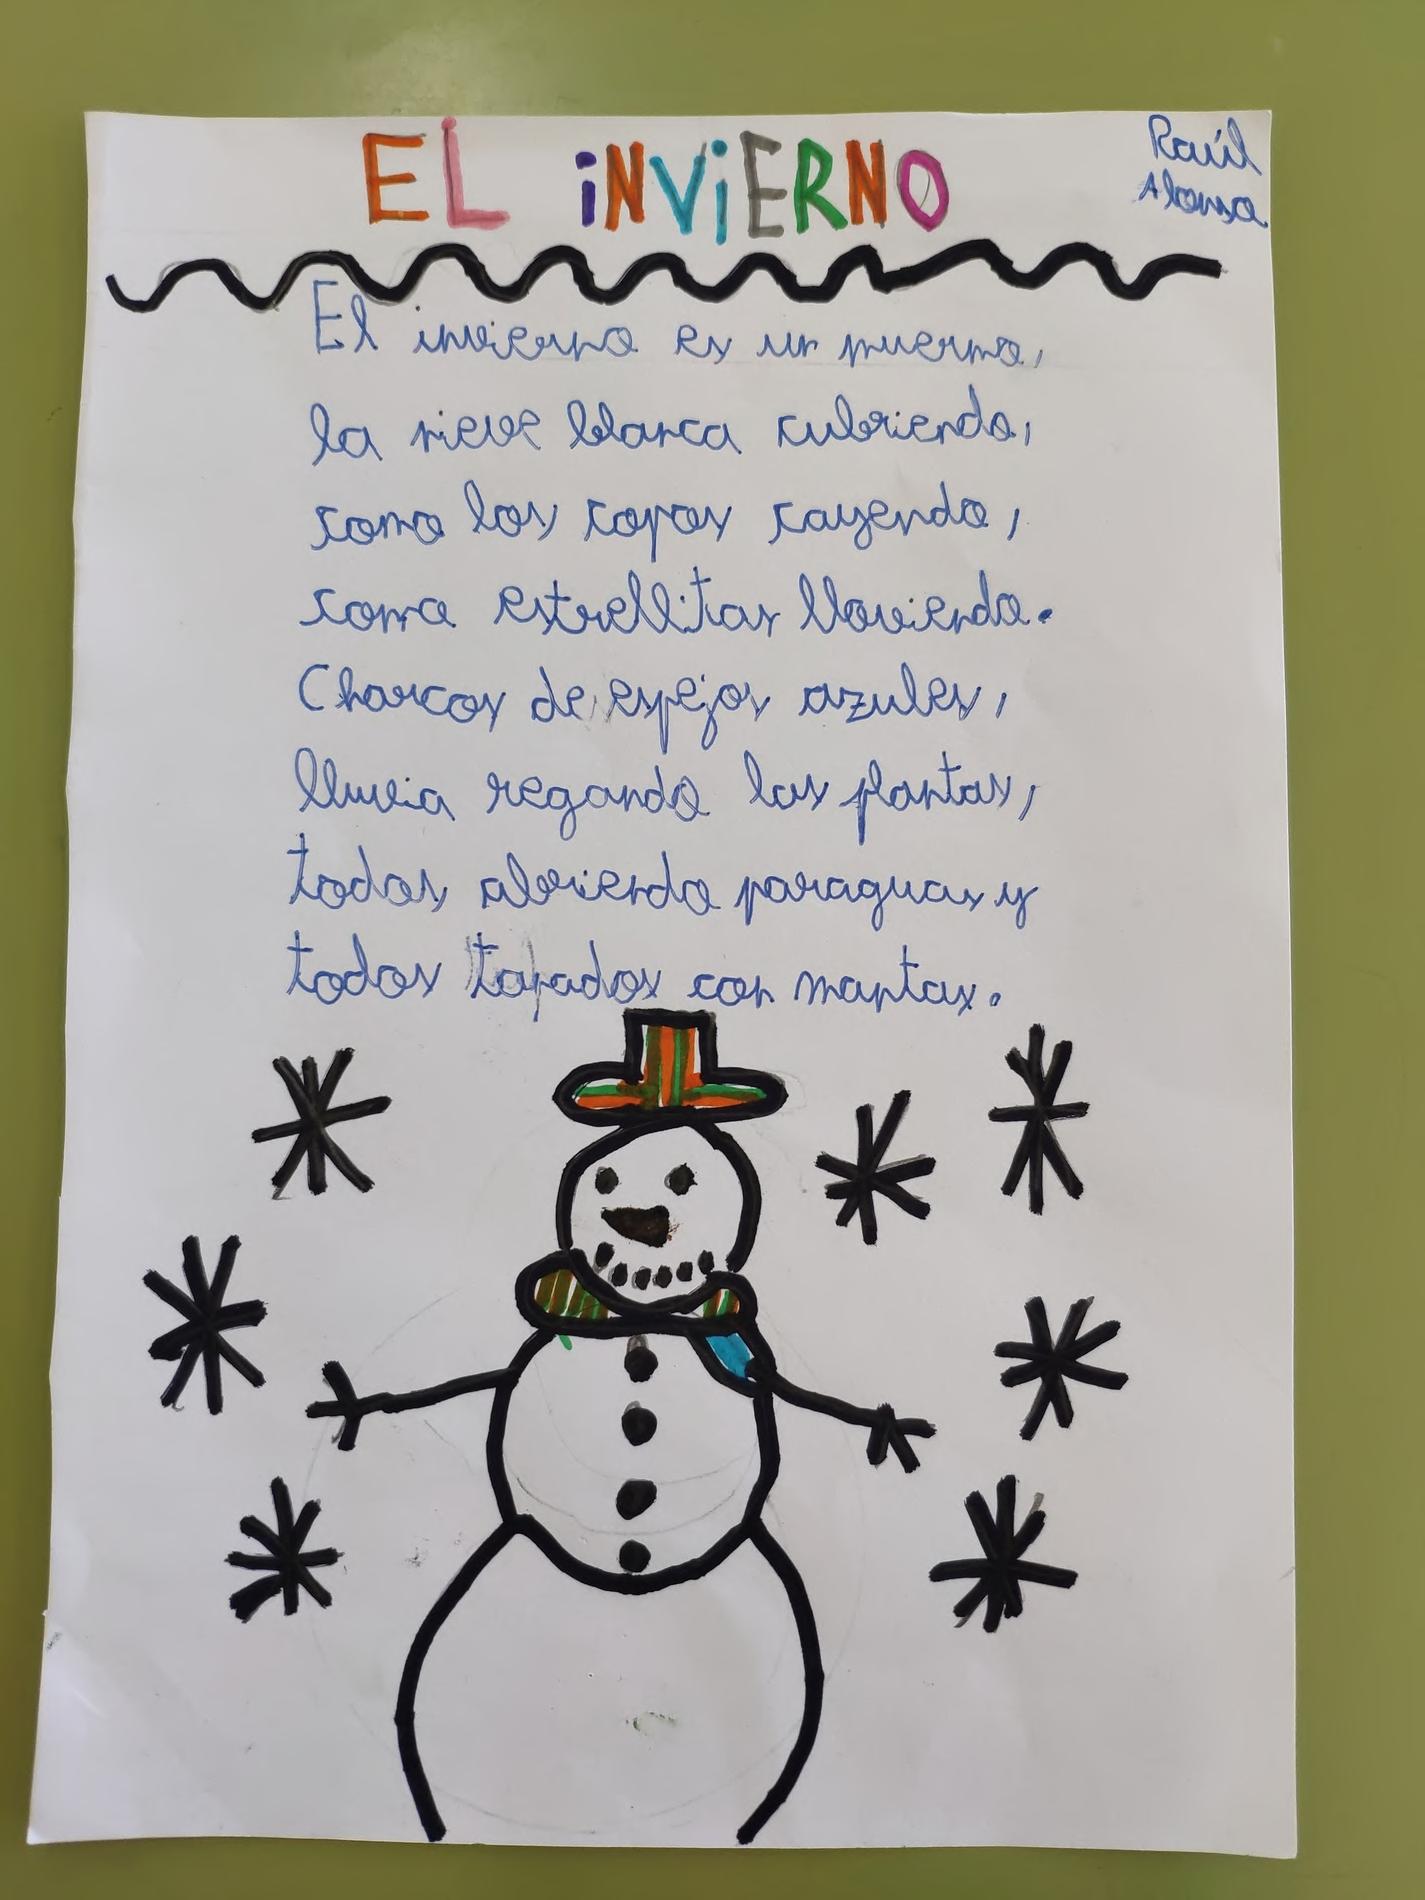 EL iNViERNO
Raúl
Alonso
El invierno es un muermo,
la nieve blanca cubriendo,
como los copos cayendo,
como estrellitas lloviendo.
Charcos de espejos azules,
lluvia regando las plantas,
todos abriendo paraguas y
todos tapados con mantas.